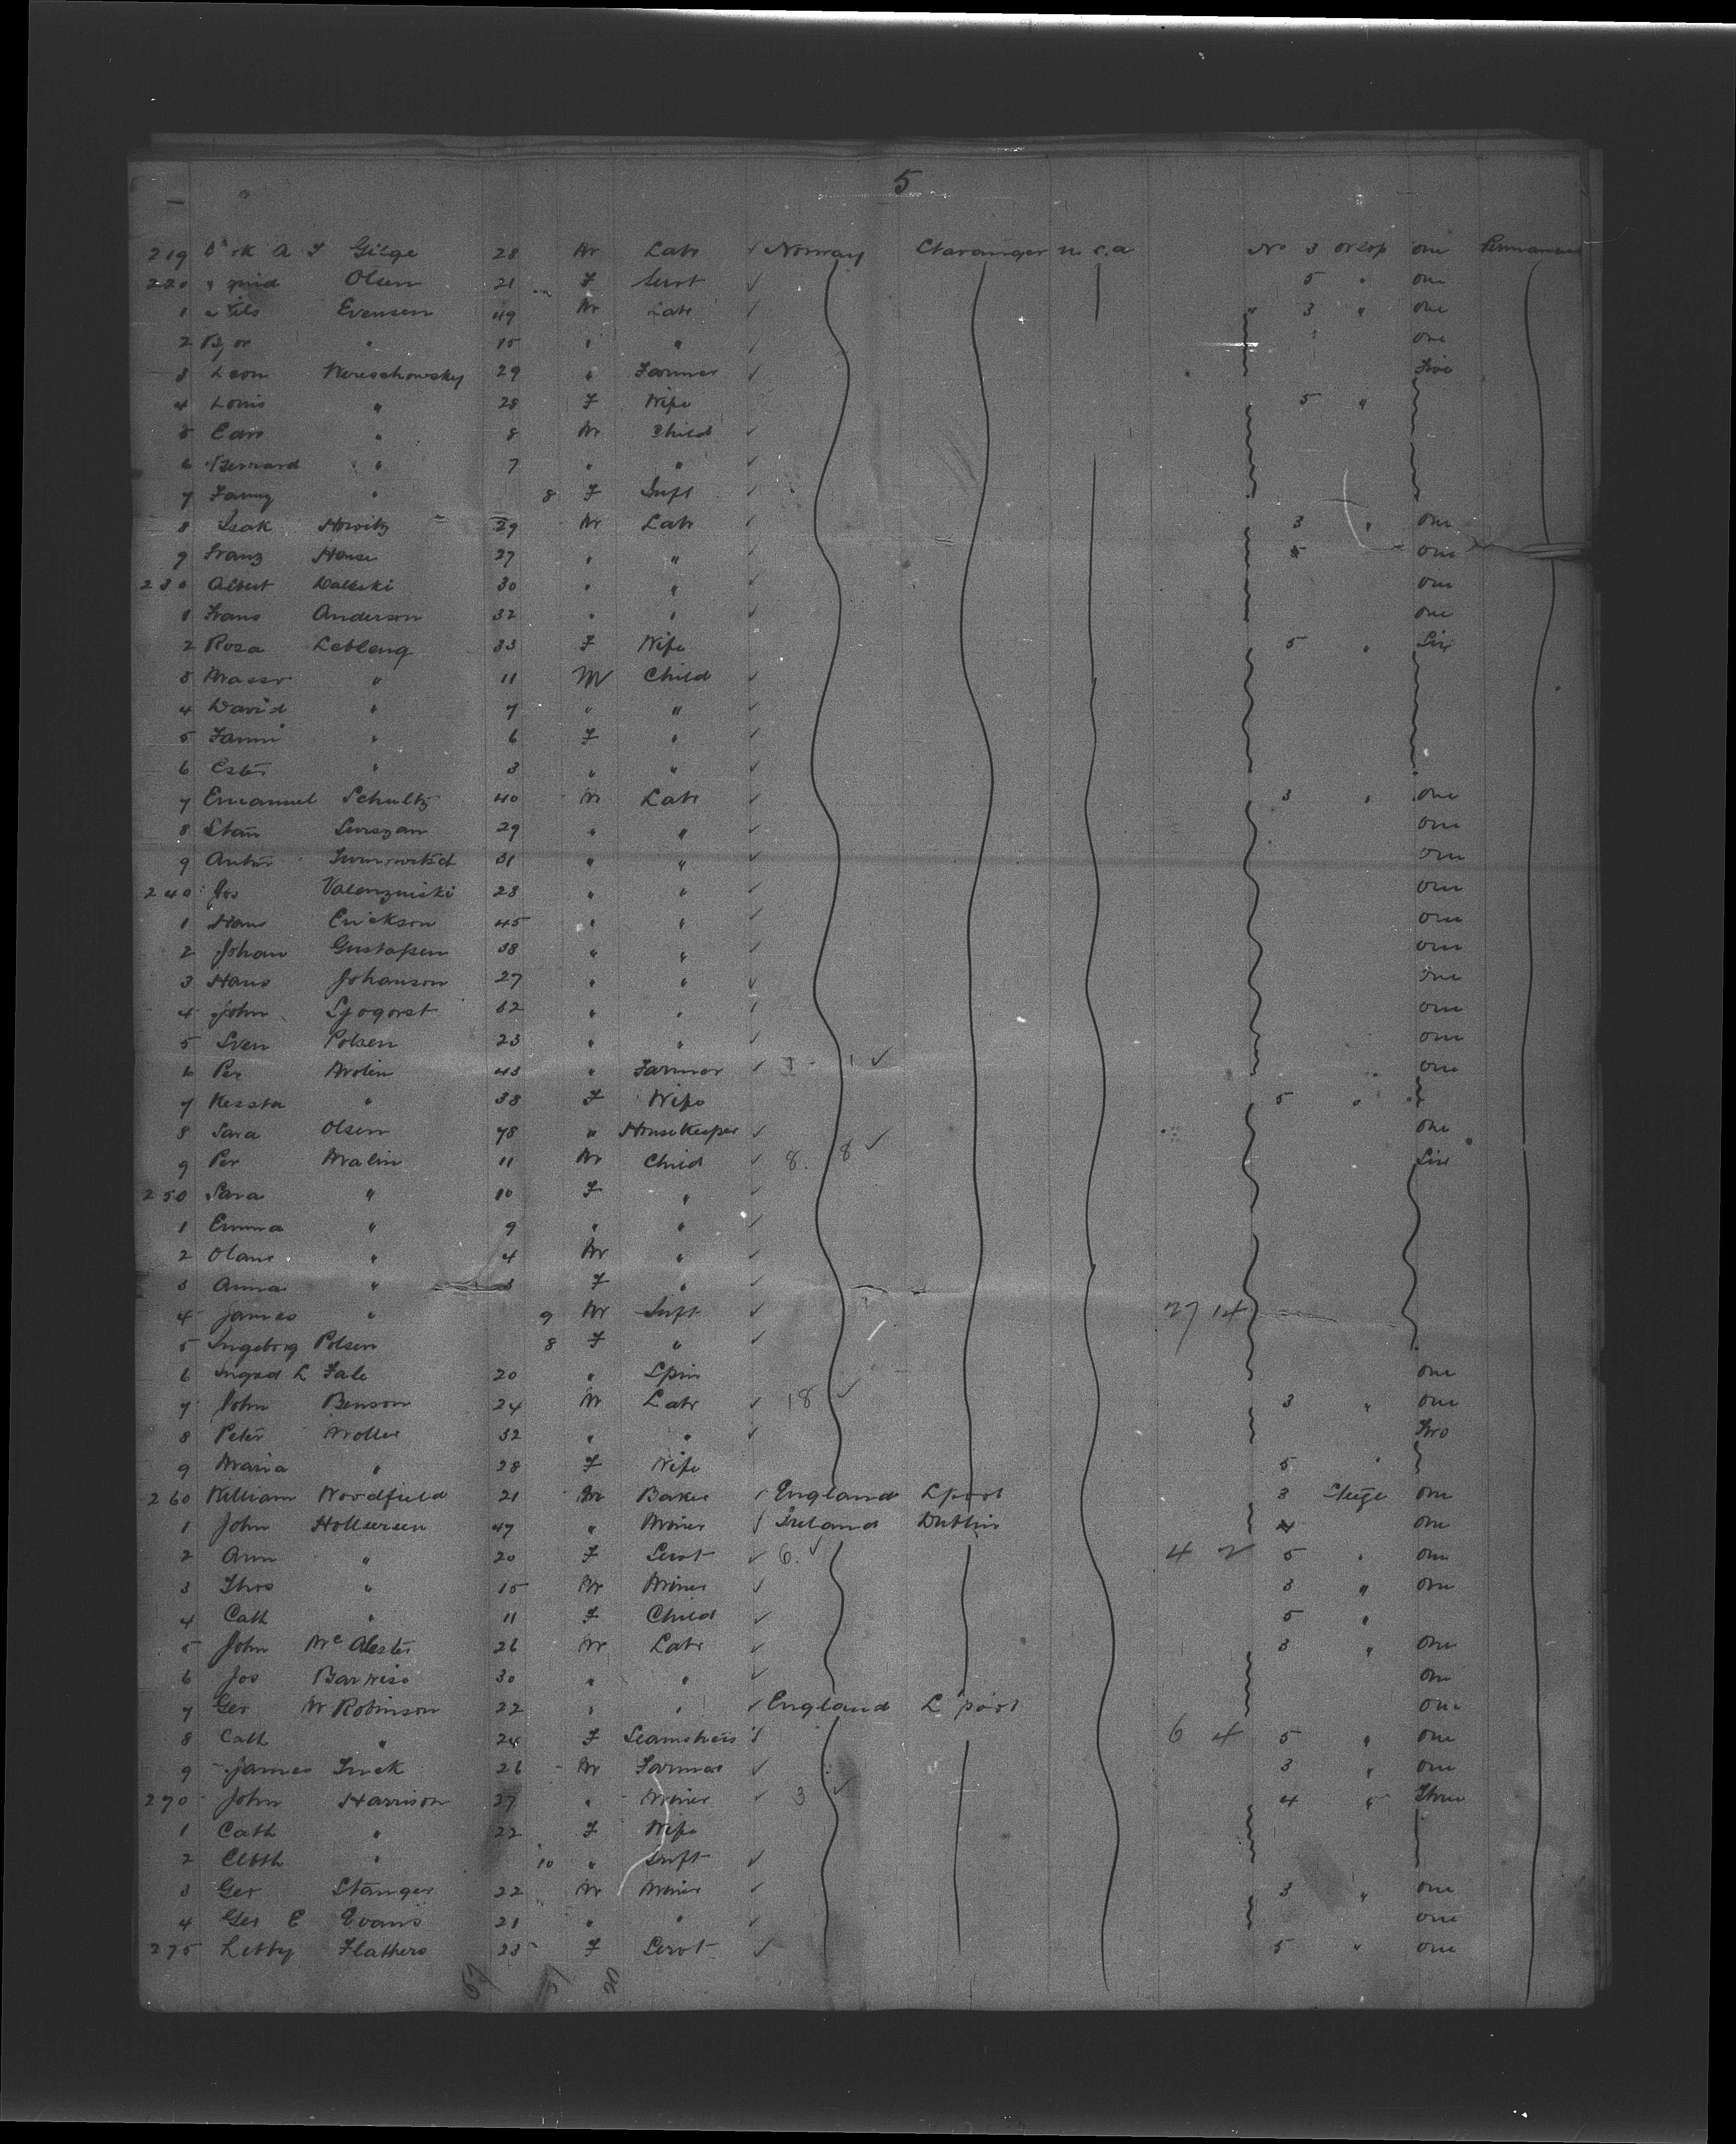 5
219 A J Gilge 28 M Labr ✓ Norway Stavanger U.S.A No 3 orlop one Permanent
220 Olsen 21 F Servt ✓ 5 " one
1 Nils Evensen 49 M Labr ✓ " 3 " one
2 " 15 " " ✓ one
3 Leon Wereschowsky 29 " Farmer ✓ Five
4 Louis " 28 F Wife 5 "
5 " 8 M Child ✓
6 Bernard " 7 " " ✓
7 Fanny " 8 F Inft ✓
8 Isak Horvitz 29 M Labr ✓ 3 " one
9 Franz House 27 " " ✓ one
230 Albert 30 " " ✓ one
1 Frans Anderson 32 " " ✓ one
2 Rosa Lebleng 33 F Wife 5 " Six
3 " 11 M Child ✓
4 David " 7 " " ✓
5 Fanni " 6 F " ✓
6 Ester " 3 " " ✓
7 Emanuel Schultz 40 M Labr ✓ 3 " one
8 Stan 29 " " ✓ one
9 Anton 31 " " ✓ one
240 Jos 28 " " ✓ one
1 Hans Erickson 45 " " ✓ one
2 Johan Gustafsen 38 " " ✓ one
3 Hans Johanson 27 " " ✓ one
4 John 32 " " ✓ one
5 Sven Polsen 23 " " ✓ one
6 Per Molin 43 " Farmer ✓ 1 1 ✓ " one
7 " 38 F Wife 5 "
8 Sara Olsen 78 " Housekeeper ✓ one
9 Per Malin 11 M Child ✓ 8 8 ✓ Six
250 Sara " 10 F " ✓
1 Emma " 9 " " ✓
2 " 4 M " ✓
3 Anna " 3 F " ✓
4 James " 9 M Inft ✓ 27 14
5 Ingeborg Polsen 8 F " ✓
6 L Fale 20 " Spin one
7 John Benson 24 M Labr ✓ 18 ✓ 3 " one
8 Peter Moller 32 " " ✓ Two
9 Maria " 28 F Wife 5 "
260 William Woodfield 21 M Baker ✓ England Lpool 3 Stege one
1 John 47 " Miner ✓ Ireland Dublin 4 one
2 Ann " 20 F Servt ✓ 6 ✓ 4 2 5 " one
3 Thos " 15 M Miner ✓ 3 " one
4 Cath " 11 F Child ✓ 5 "
5 John McAlester 26 M Labr ✓ 3 " one
6 Jos Barwise 30 " " ✓ one
7 Geo W Robinson 22 " " ✓ England L'pool one
8 Cath " 24 F Seamstress ✓ 6 4 5 " one
9 James 26 M Farmer ✓ 3 " one
270 John Harrison 27 " Miner ✓ 3 ✓ 4 " Three
1 Cath " 22 F Wife
2 Elbth " 10 " Inft ✓
3 Geo Stanger 22 M Miner ✓ 3 " one
4 Geo E Evans 21 " " ✓ one
275 Letty Flathers 23 F Servt ✓ 5 " one